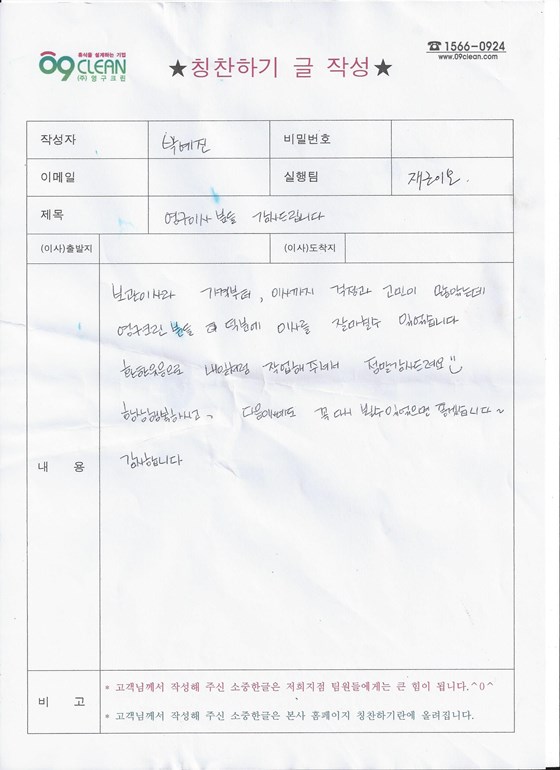 휴식을 설계하는 기업
09CLEAN
(주)영구크린
★칭찬하기 글 작성★
☎ 1566-0924
www.09clean.com
작성자 박예진 비밀번호
이메일 실행팀
제목 영구이사 분들 감사드립니다
(이사)출발지 (이사)도착지
보관이사라 가격부터, 이사까지 걱정과 고민이 많았는데
영구크린 분들 덕분에 이사를 잘마칠수 있었습니다
환한웃음으로 내일처럼 작업해주셔서 정말감사드려요
항상행복하시고, 다음에도 꼭 다시 뵐수있었으면 좋겠습니다~
감사합니다
내 용
비 고
* 고객님께서 작성해 주신 소중한글은 저희지점 팀원들에게는 큰 힘이 됩니다.^0^
* 고객님께서 작성해 주신 소중한글은 본사 홈페이지 칭찬하기란에 올려집니다.